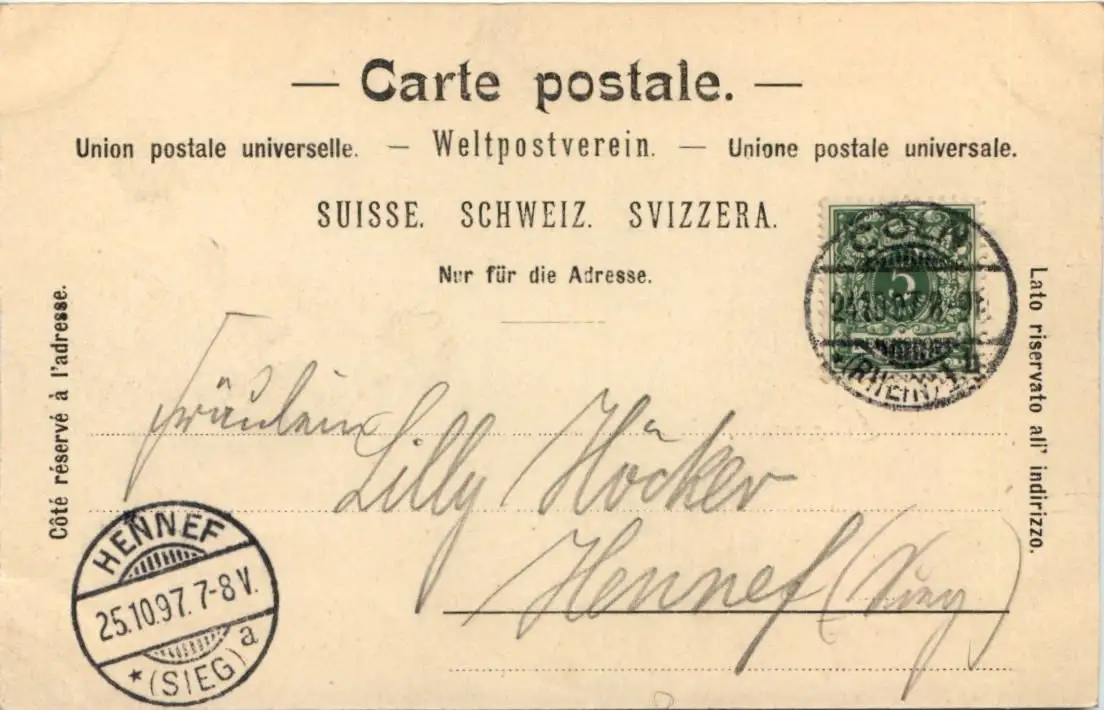 — Carte postale. —
Union postale universelle. — Weltpostverein. — Unione postale universale.
SUISSE. SCHWEIZ. SVIZZERA.
Nur für die Adresse.
Côté réservé à l'adresse.
Lato riservato all' indirizzo.
5
CÖLN
24.10.97
(RHEIN)
Fräulein
Lilly Höcker
Hennef (Sieg)
HENNEF
25.10.97. 7-8 V.
* (SIEG) a